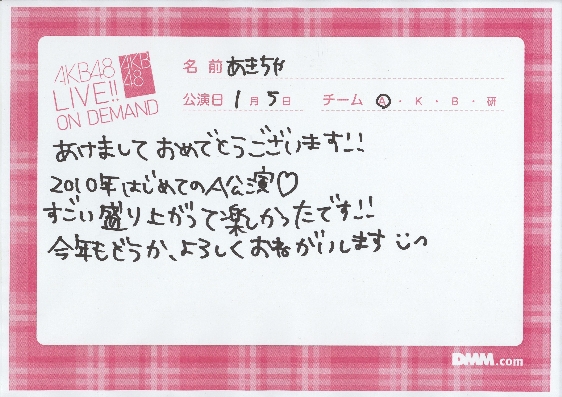 AKB48
LIVE!!
ON DEMAND
AKB
48
名前 あきちゃ
公演日 1月5日 チーム A・K・B・研
あけまして おめでとうございます!!
2010年はじめてのA公演♡
すごい盛り上がって楽しかったです!!
今年もどうか、よろしくおねがいします
DMM.com